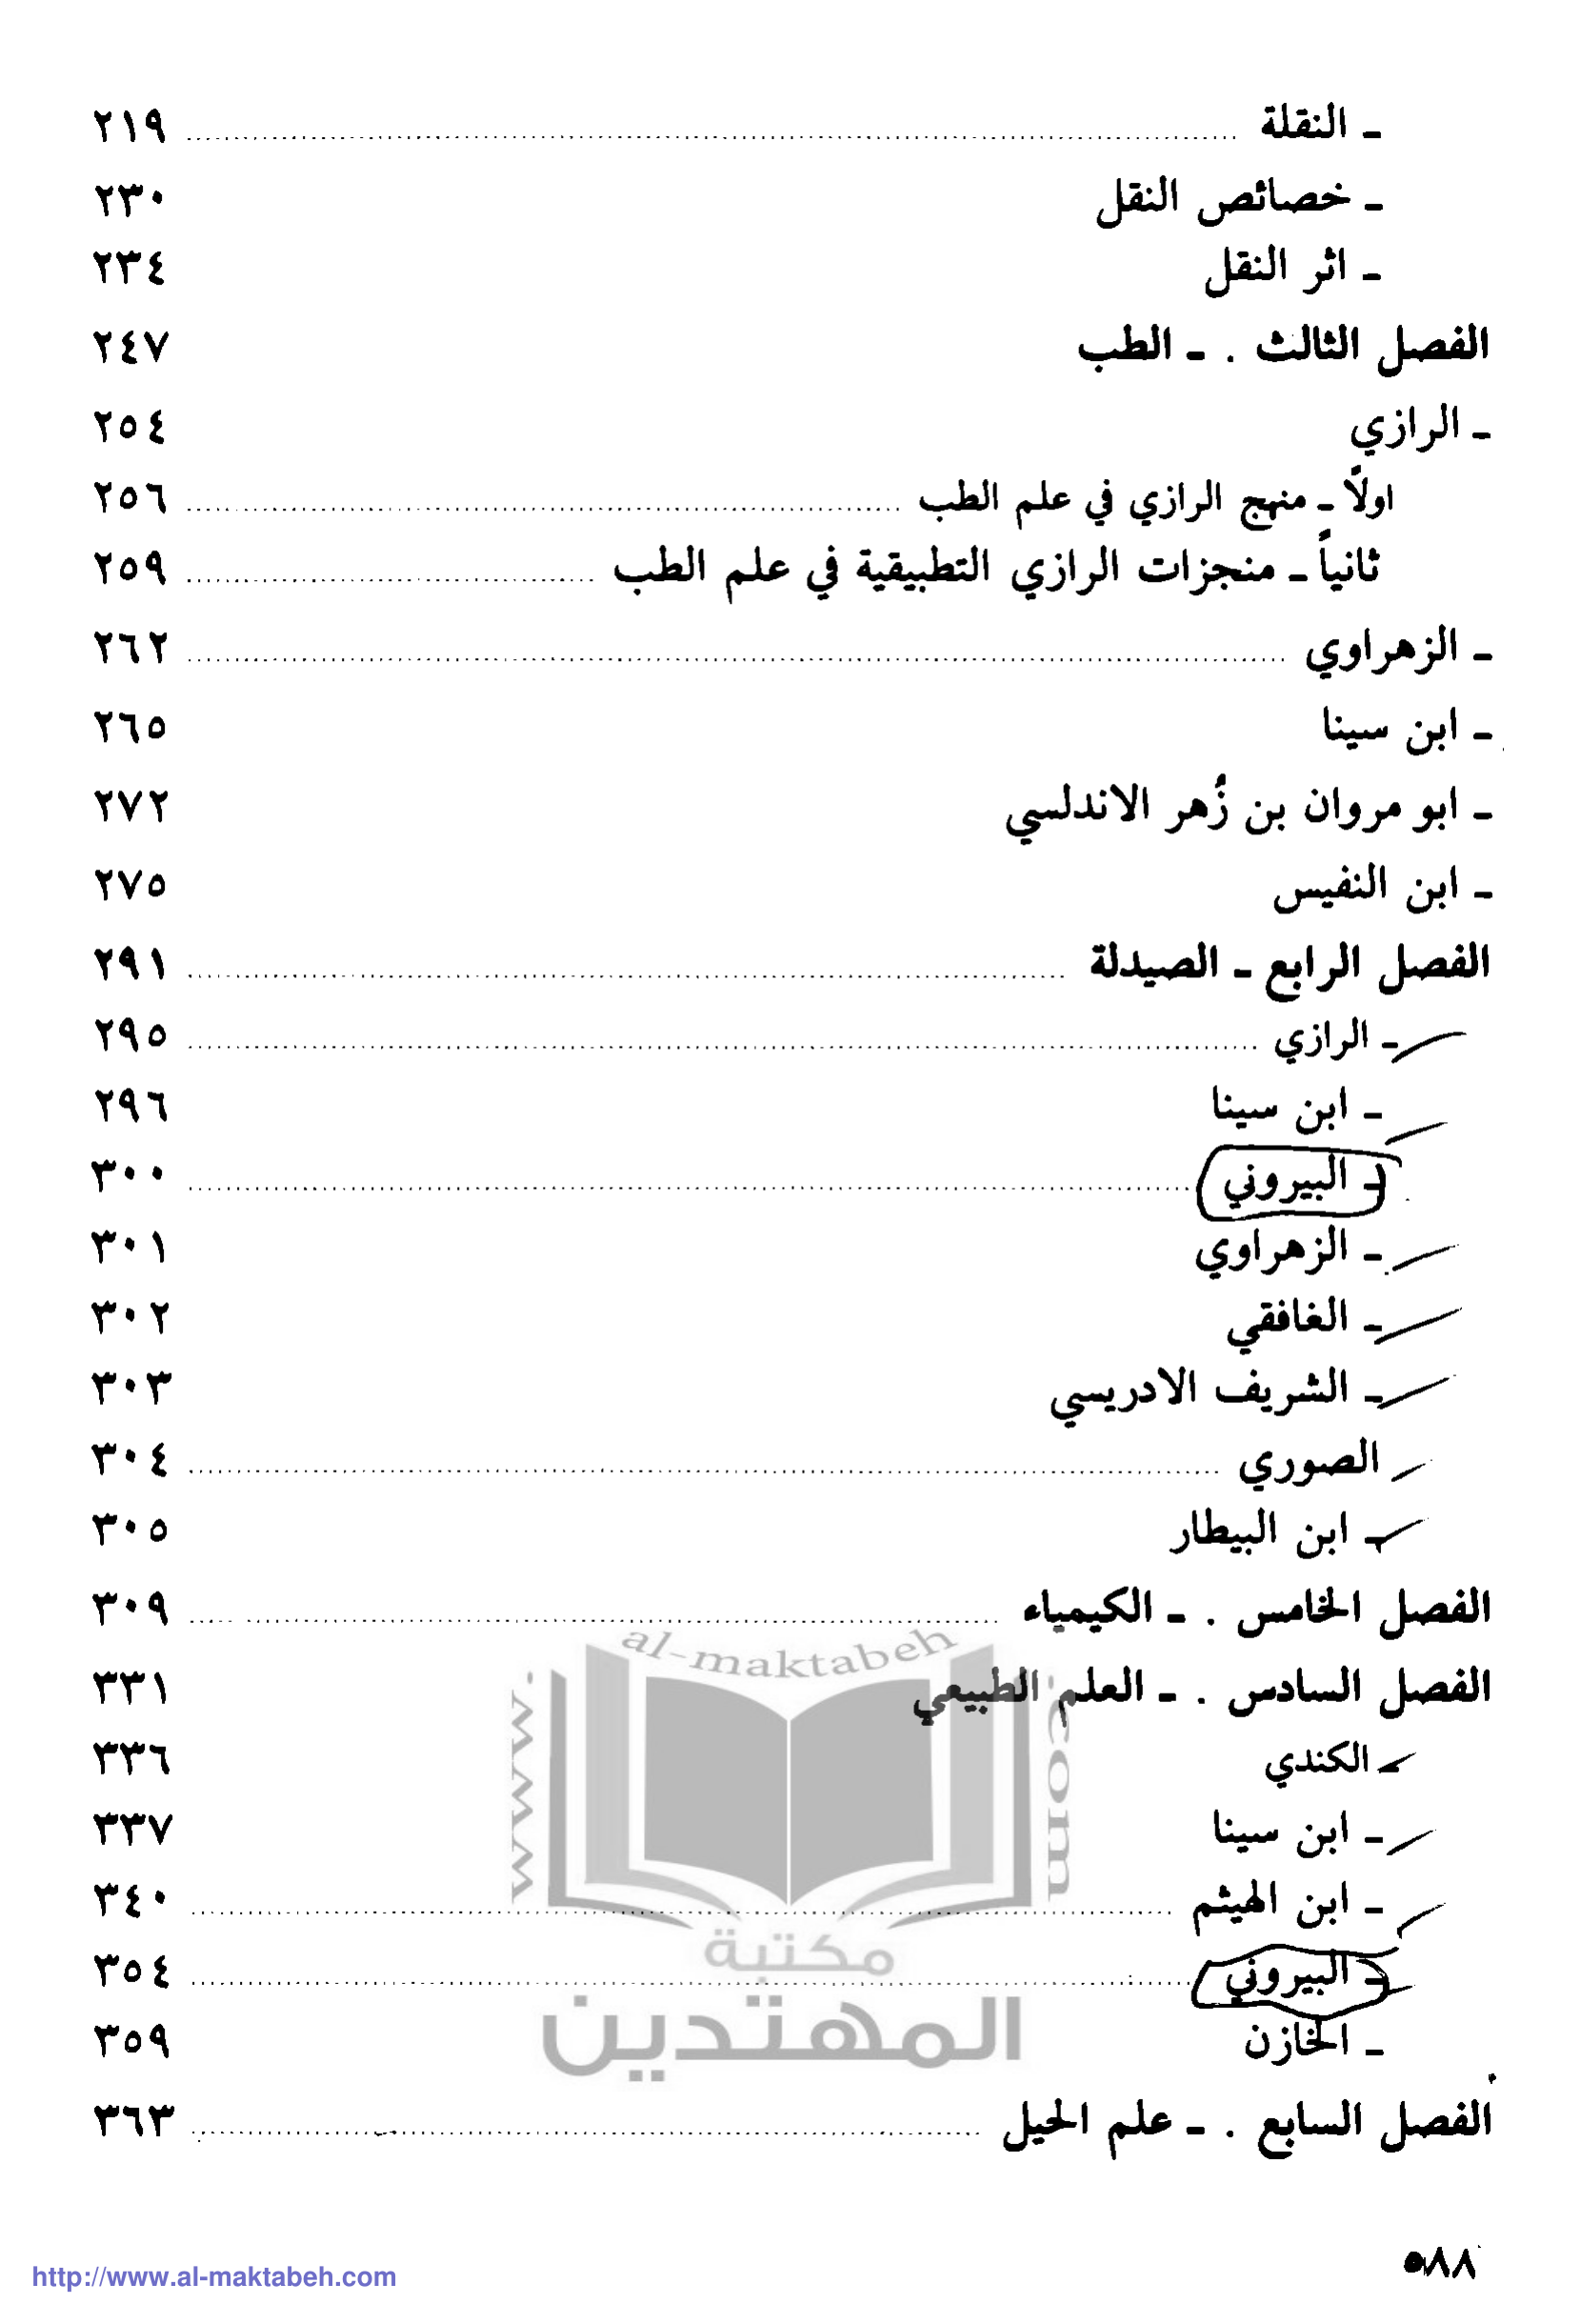 ـ النقلة ٢١٩
ـ خصائص النقل ٢٣٠
ـ اثر النقل ٢٣٤
الفصل الثالث . ـ الطب ٢٤٧
ـ الرازي ٢٥٤
اولاً ـ منهج الرازي في علم الطب ٢٥٦
ثانياً ـ منجزات الرازي التطبيقية في علم الطب ٢٥٩
ـ الزهراوي ٢٦٢
ـ ابن سينا ٢٦٥
ـ ابو مروان بن زُهر الاندلسي ٢٧٢
ـ ابن النفيس ٢٧٥
الفصل الرابع ـ الصيدلة ٢٩١
ـ الرازي ٢٩٥
ـ ابن سينا ٢٩٦
ـ البيروني ٣٠٠
ـ الزهراوي ٣٠١
ـ الغافقي ٣٠٢
ـ الشريف الادريسي ٣٠٣
الصوري ٣٠٤
ـ ابن البيطار ٣٠٥
الفصل الخامس . ـ الكيمياء ٣٠٩
الفصل السادس . ـ العلم الطبيعي ٣٣١
ـ الكندي ٣٣٦
ـ ابن سينا ٣٣٧
ـ ابن الهيثم ٣٤٠
ـ البيروني ٣٥٤
ـ الخازن ٣٥٩
الفصل السابع . ـ علم الحيل ٣٦٣
www.al-maktabeh.com
مكتبة
المهتدين
٥٨٨
http://www.al-maktabeh.com